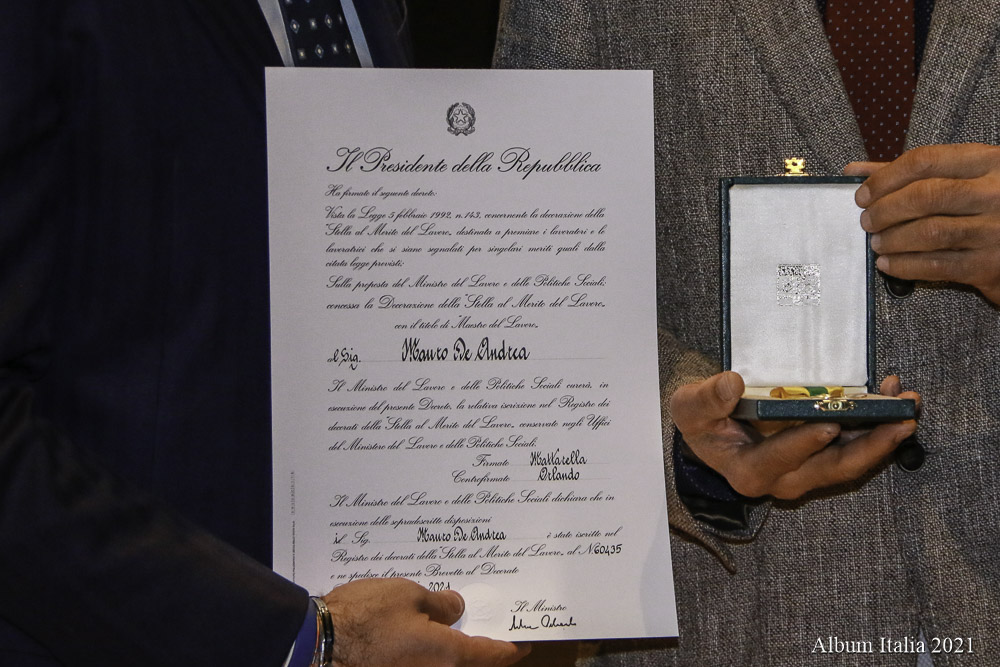 Il Presidente della Repubblica
Ha firmato il seguente decreto:
Vista la Legge 5 febbraio 1992, n. 143, concernente la decorazione della
"Stella al Merito del Lavoro", destinata a premiare i lavoratori e le
lavoratrici che si siano segnalati per singolari meriti quali dalla
citata legge previsti;
Sulla proposta del Ministro del Lavoro e delle Politiche Sociali;
concessa la Decorazione della "Stella al Merito del Lavoro"
con il titolo di "Maestro del Lavoro"
al Sig. Mauro De Andrea
Il Ministro del Lavoro e delle Politiche Sociali curerà, in
esecuzione del presente Decreto, la relativa iscrizione nel Registro dei
decorati della "Stella al Merito del Lavoro", conservato negli Uffici
del Ministero del Lavoro e delle Politiche Sociali.
Firmato Mattarella
Controfirmato Orlando
Il Ministro del Lavoro e delle Politiche Sociali dichiara che in
esecuzione delle sopradescritte disposizioni
il Sig. Mauro De Andrea è stato iscritto nel
Registro dei decorati della "Stella al Merito del Lavoro" al N° 60435
e ne spedisce il presente Brevetto al Decorato
2021
Il Ministro
Album Italia 2021